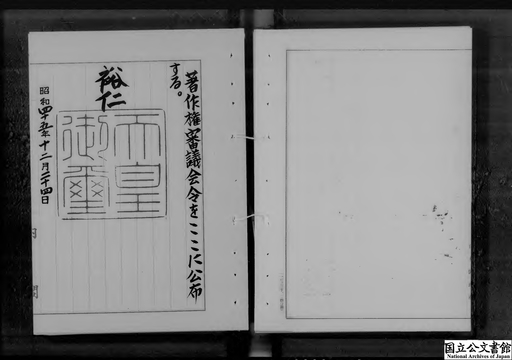 著作権審議会令をここに公布
する。
裕仁
天皇
御璽
昭和四十五年十二月二十四日
国立公文書館
National Archives of Japan